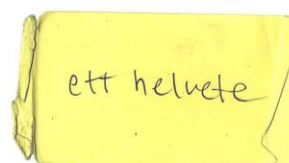 ett helvete